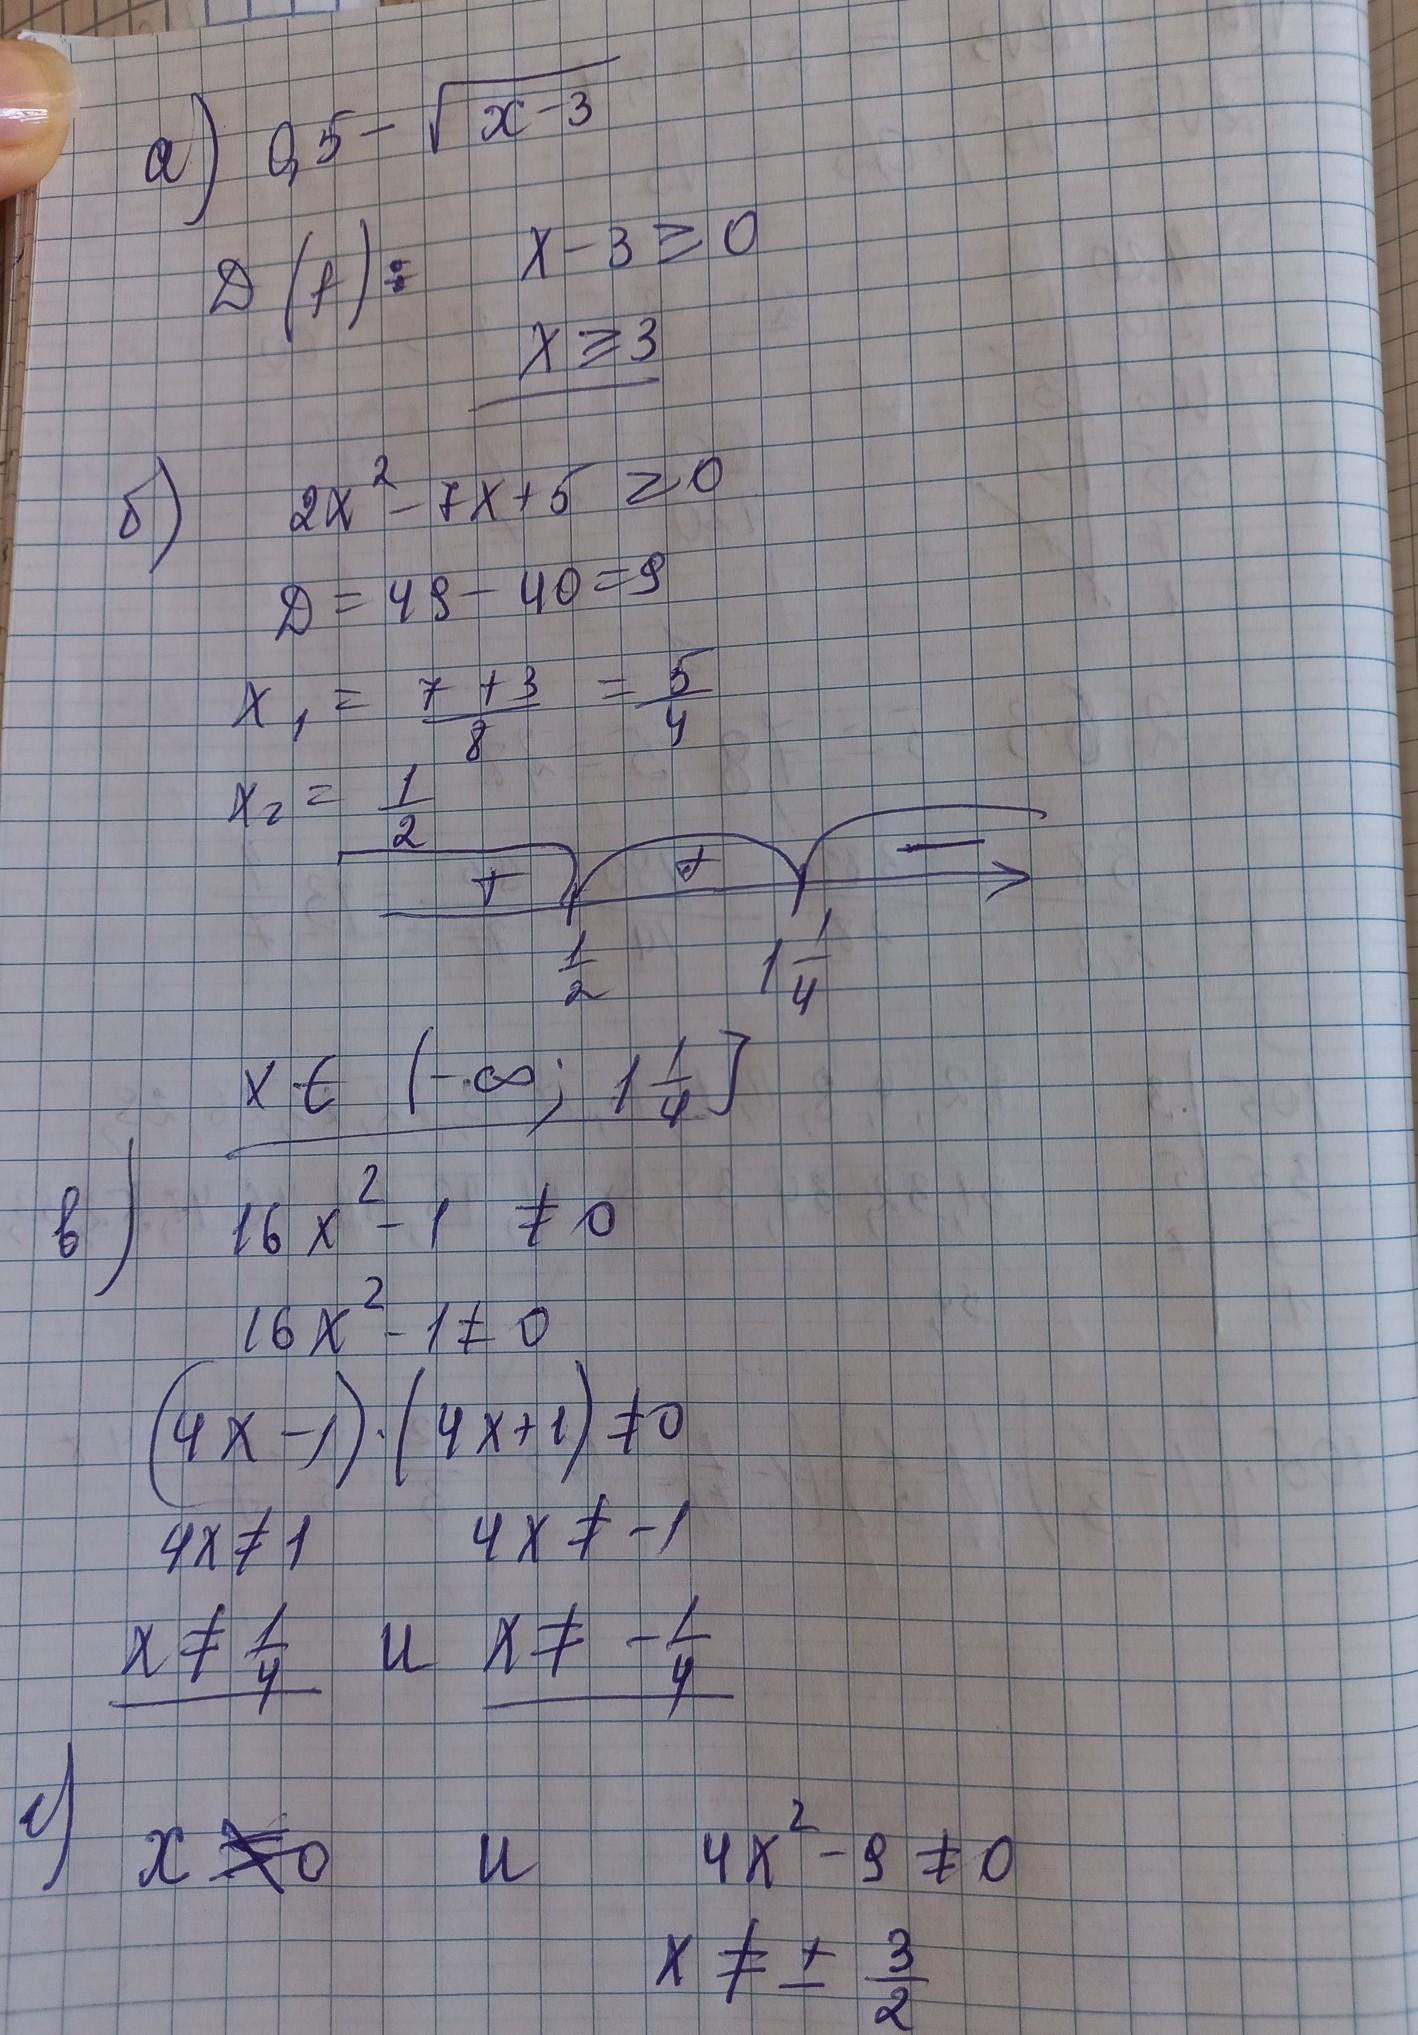 а) 0,5 - √(x-3)
D(f) = x - 3 ≥ 0
x ≥ 3
б) 2x² - 7x + 5 ≥ 0
D = 49 - 40 = 9
x₁ = (7 + 3)/8 = 5/4
x₂ = 1/2
+ + —
1/2 1 1/4
x ∈ (-∞; 1 1/4]
в) 16x² - 1 ≠ 0
16x² - 1 ≠ 0
(4x - 1) · (4x + 1) ≠ 0
4x ≠ 1 4x ≠ -1
x ≠ 1/4 и x ≠ -1/4
г) x 0 и 4x² - 9 ≠ 0
x ≠ ± 3/2